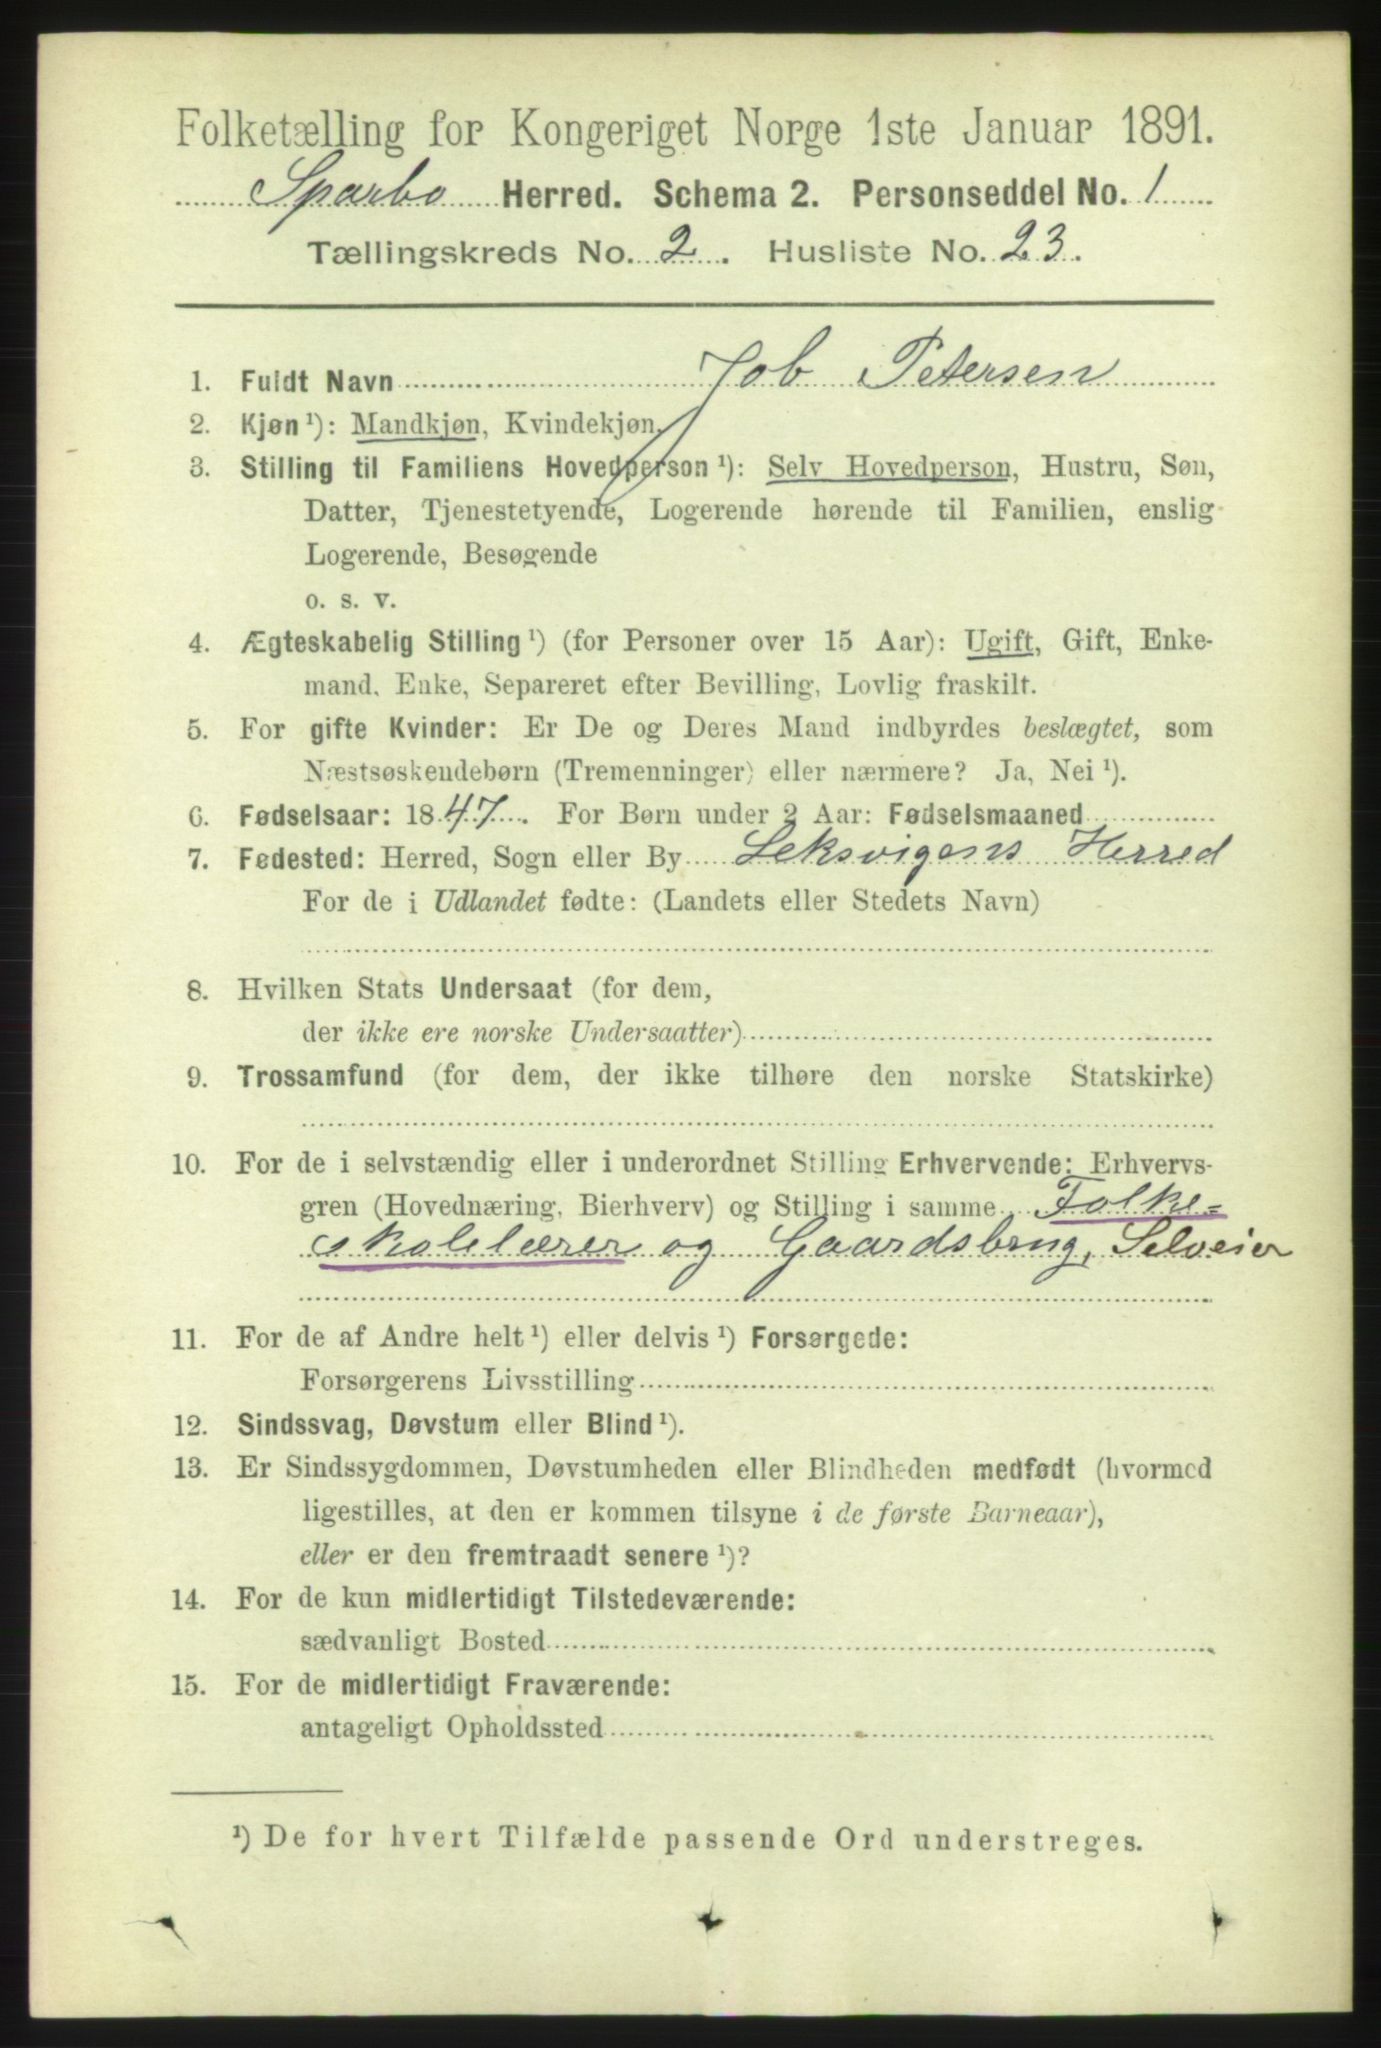 Folketælling for Kongeriget Norge 1ste Januar 1891.
Sparbo Herred. Schema 2. Personseddel No. 1
Tællingskreds No. 2. Husliste No. 23.
1. Fuldt Navn Job Petersen
2. Kjøn ¹): Mandkjøn, Kvindekjøn.
3. Stilling til Familiens Hovedperson ¹): Selv Hovedperson, Hustru, Søn,
Datter, Tjenestetyende, Logerende hørende til Familien, enslig
Logerende, Besøgende
o. s. v.
4. Ægteskabelig Stilling ¹) (for Personer over 15 Aar): Ugift, Gift, Enke-
mand, Enke, Separeret efter Bevilling, Lovlig fraskilt.
5. For gifte Kvinder: Er De og Deres Mand indbyrdes beslægtet, som
Næstsøskendebørn (Tremenninger) eller nærmere? Ja, Nei ¹).
6. Fødselsaar: 1847. For Børn under 2 Aar: Fødselsmaaned
7. Fødested: Herred, Sogn eller By Leksvigens Herred
For de i Udlandet fødte: (Landets eller Stedets Navn)
8. Hvilken Stats Undersaat (for dem,
der ikke ere norske Undersaatter)
9. Trossamfund (for dem, der ikke tilhøre den norske Statskirke)
10. For de i selvstændig eller i underordnet Stilling Erhvervende: Erhvervs-
gren (Hovednæring, Bierhverv) og Stilling i samme Folke=
skolelærer og Gaardsbrug, Selveier
11. For de af Andre helt ¹) eller delvis ¹) Forsørgede:
Forsørgerens Livsstilling
12. Sindssvag, Døvstum eller Blind ¹).
13. Er Sindssygdommen, Døvstumheden eller Blindheden medfødt (hvormed
ligestilles, at den er kommen tilsyne i de første Barneaar),
eller er den fremtraadt senere ¹)?
14. For de kun midlertidigt Tilstedeværende:
sædvanligt Bosted
15. For de midlertidigt Fraværende:
antageligt Opholdssted
¹) De for hvert Tilfælde passende Ord understreges.